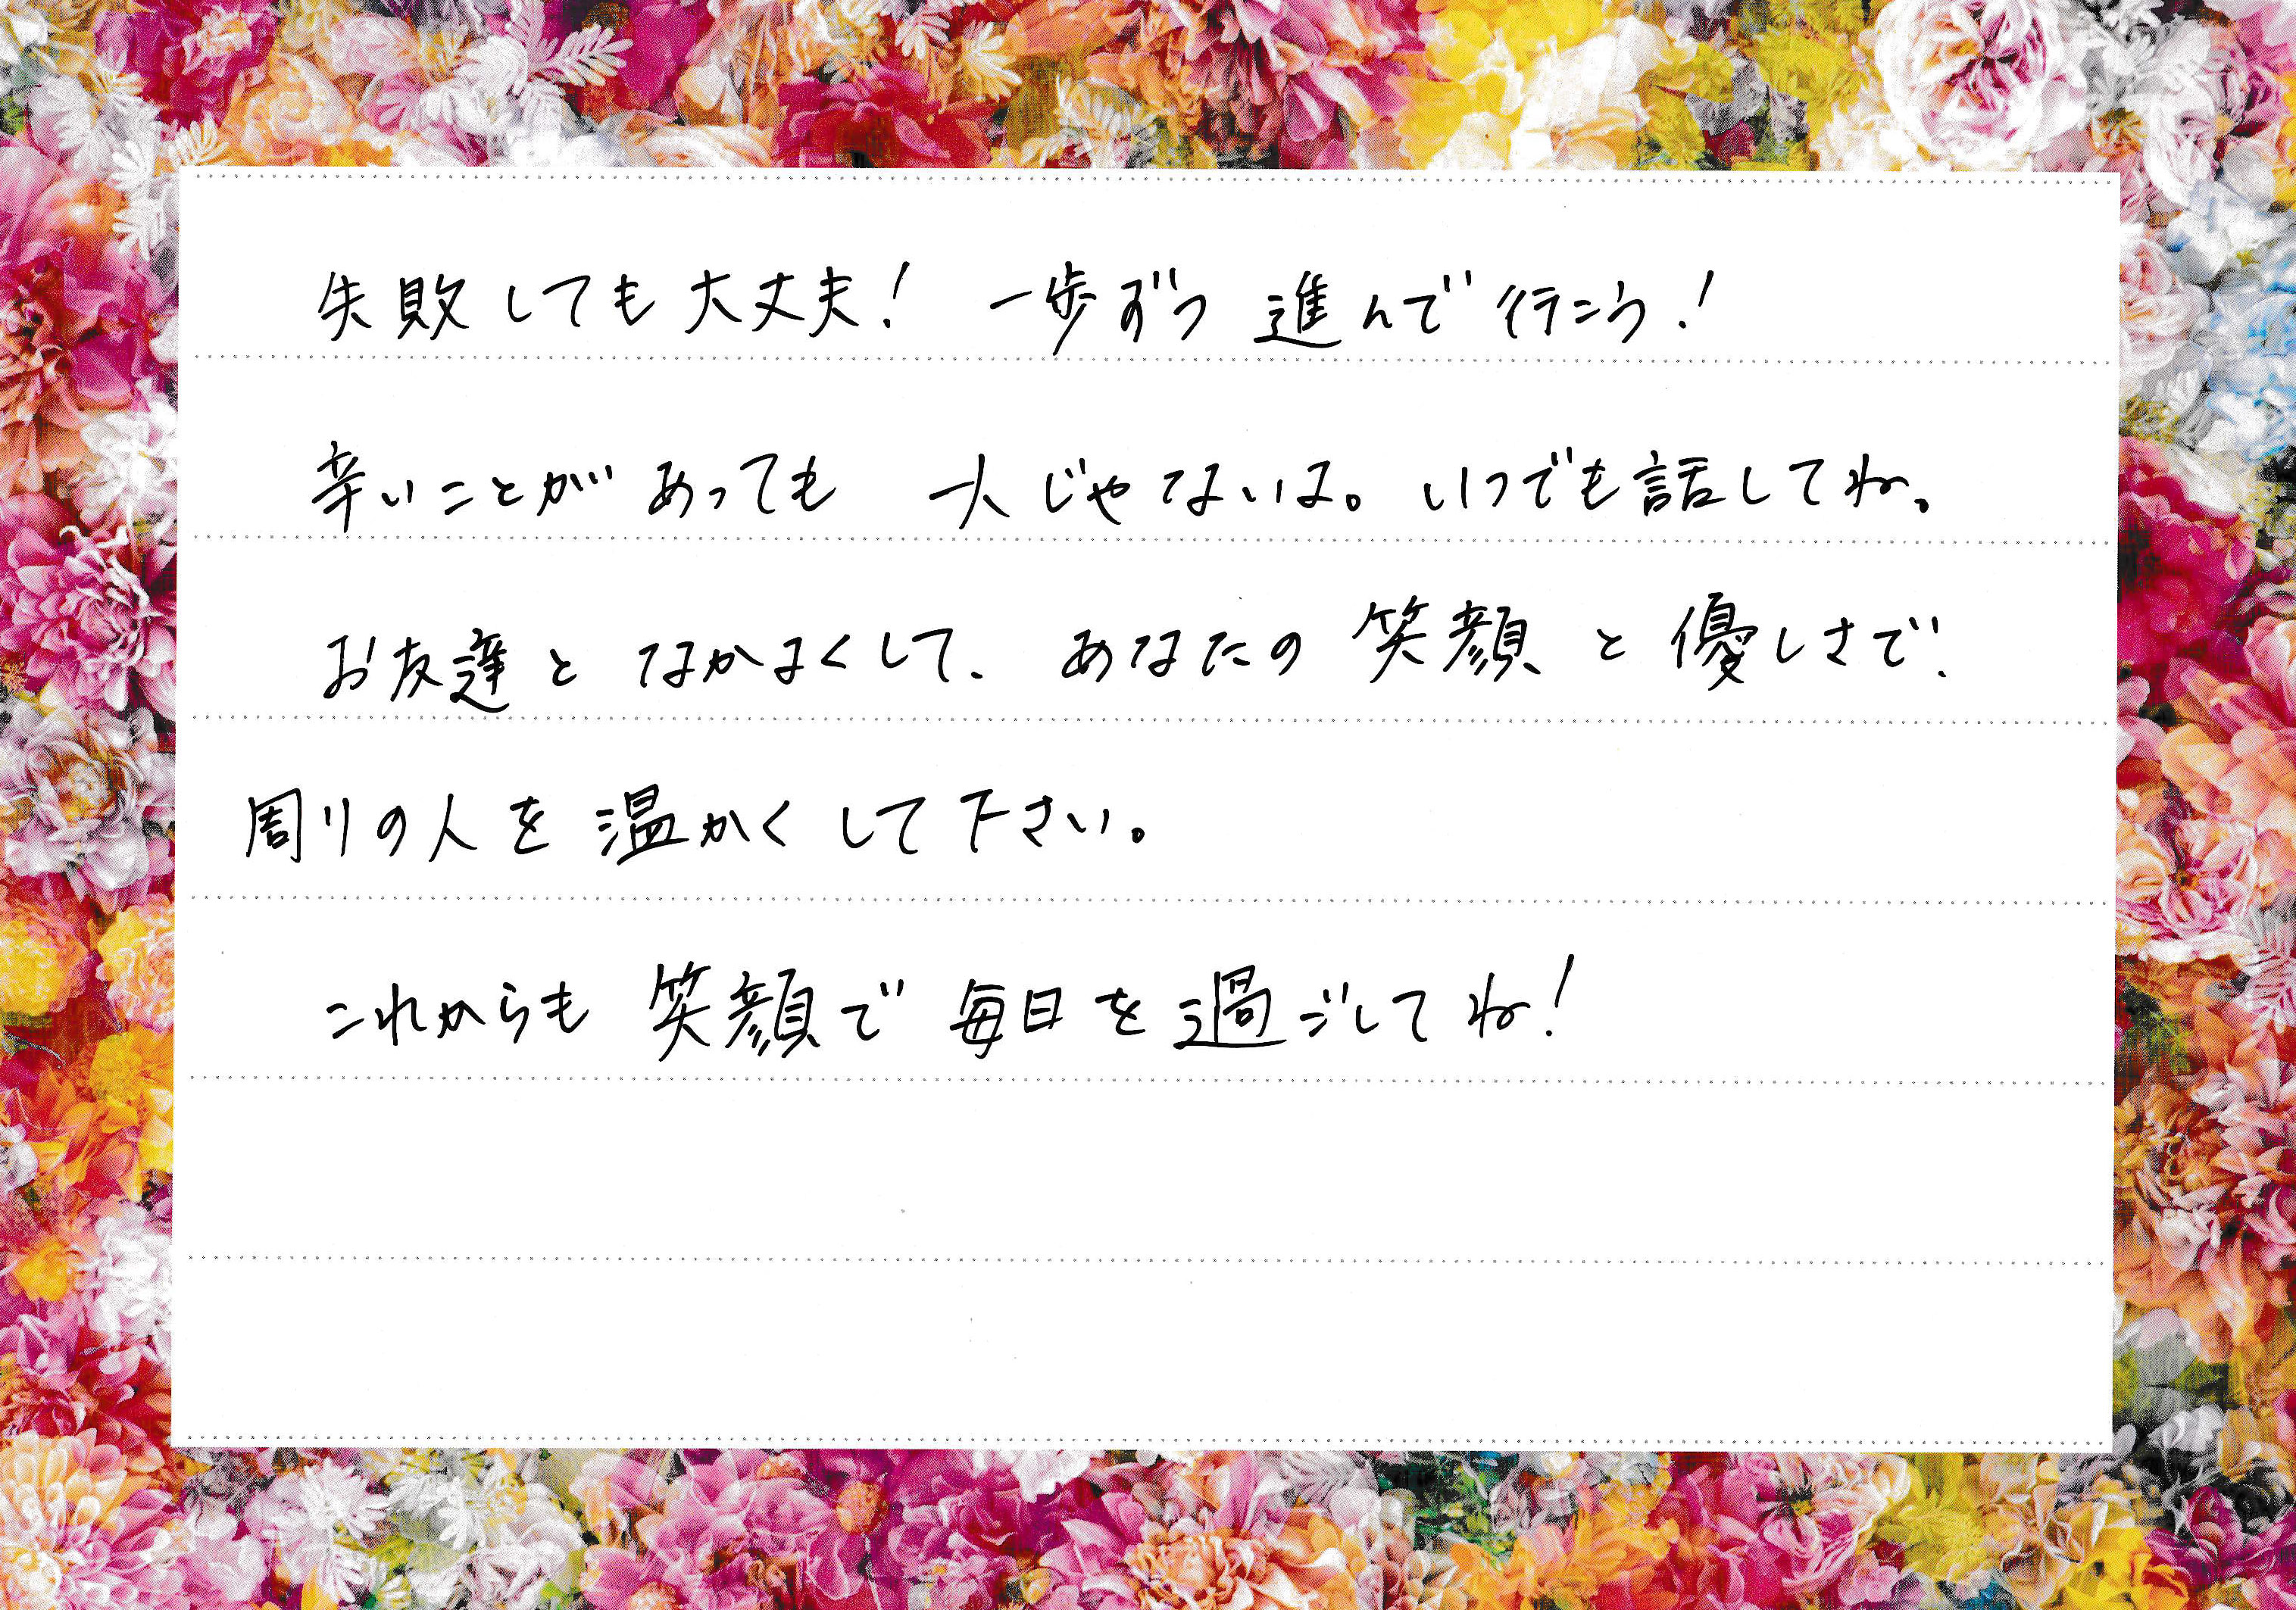 失敗しても大丈夫！ 一歩ずつ進んで行こう！
辛いことがあっても 一人じゃないよ。いつでも話してね。
お友達となかよくして、あなたの笑顔と優しさで、
周りの人を温かくして下さい。
これからも笑顔で毎日を過ごしてね！